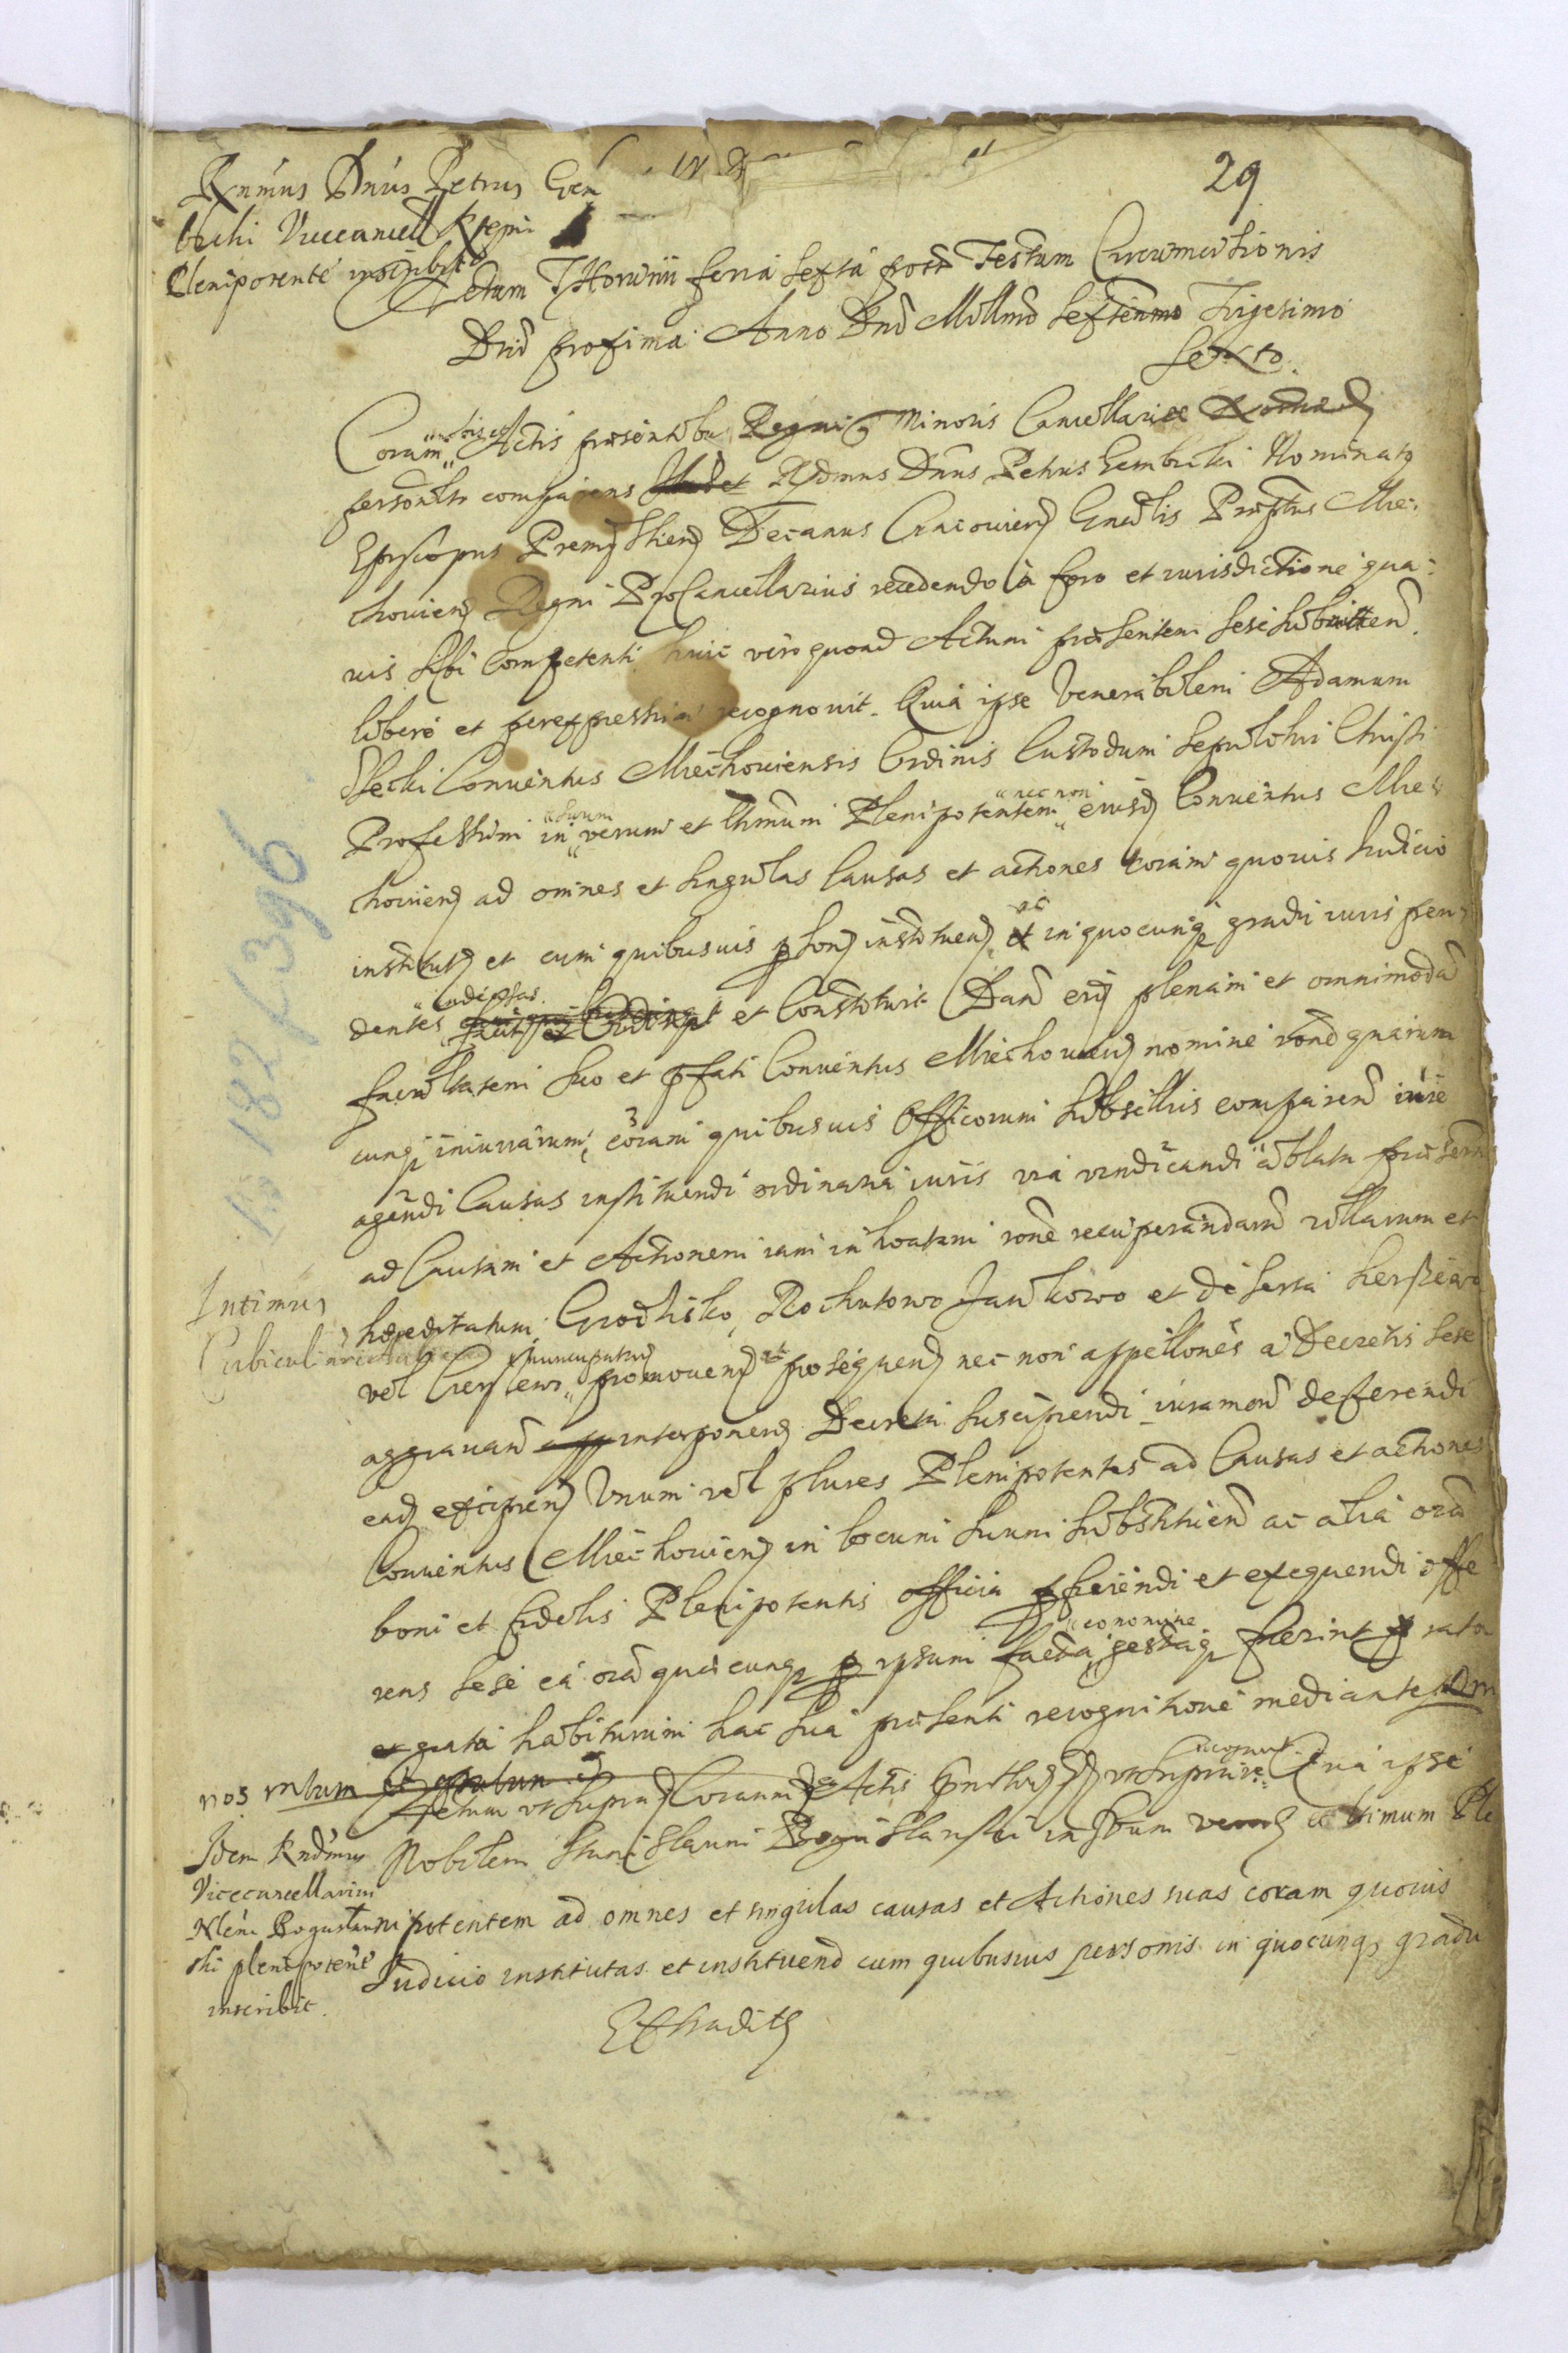 29
Rnmus Dnus Petrus Gem
bicki Vicecancell Regni
Plenipotente inscribit
Actum Thorunii feria sexta post Festum Circumcisionis
Dni proxima Anno Dni Millmo sexcenmo Trigesimo
sexto.
Coram Actis praesentibus Regni Minoris Cancellariae
personalr comparens Rndmus Dnus Petrus Gembicki Nominatus
Episcopus Premysliens Decanus Cracoviens Gnealis Praeptus Mie-
choviens Regni ProCancellarius recedendo à foro et iurisdictione qua-
vis sibi competenti huic vero quoad Actum praesentem sese submitten
libere et per expressum recognovit. Quia ipse Venerabilem Adamum
Conventus Miechoviensis Ordinis Custodum Sepulchri Christi
"suum "nec non
Professum in verum et lttimum Plenipotentem eiusd Conventus Mie
choviens ad omnes et singulas Causas et actiones coram quovis Iudicio
ac
institut et cum quibusvis pson instituen et in quocunq gradu iuris pen
"ad ipsas
dentes et Constituit Dans eid plenam et omnimodam
facultatem suo et pfati Conventus Miechoviens nomine rone quarum
cunq iniuriarum, coram quibusvis Officiorum subselliis comparen iure
agendi Causas instituendi ordinaria iuris via vindicandi ablata praesertim
ad Causam et Actionem iam inchoatam rone recuperandarum villarum et
Intimus
Cubicul
haereditatum, Grodzisko, Rochutowo Jankowo et deserta
nuncupatas
vel promovens et prosequens nec non appellones a Decretis sese
aggravan interponens Decreta suscipiendi iuramen deferendi
ead excipiens Unum vel plures Plenipotentes ad Causas et actiones
Conventus Miechoviens in locum suum substituen ac alia oia
boni et fidelis Plenipotentis officia pficiendi et exequendi offe
"eo nomine
rens sese ea oia quaecunq p ipsum facta gestaq fuerint rata
et grata habiturum hac sua praesenti recognitione mediante
nos
Actum ut supra Coram Actis ut supra recognovit Quia ipse
Idem Rndmus
Vicecancellarius
Nlem Boguslaw
ski plenipotente
inscribit.
Nobilem Stanislaum Boguslawski in suum verum et lttimum Ple
nipotentem ad omnes et singulas causas et Actiones suas coram quovis
Iudicio institutas et instituend cum quibusvis personis in quocunq gradu
Extradit